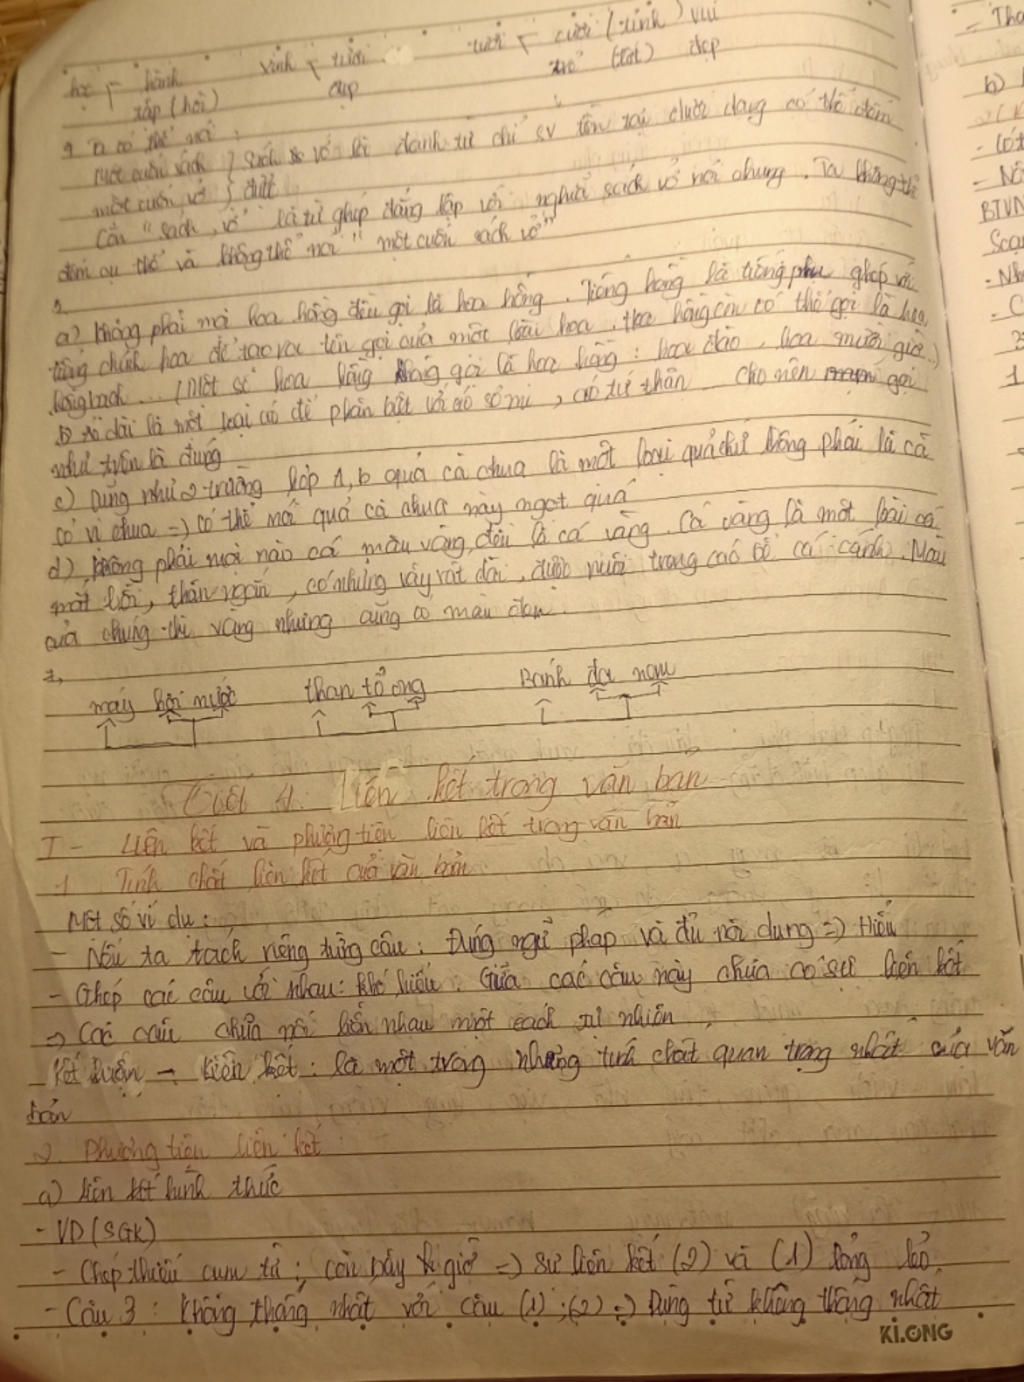 học hành xinh tươi tươi cười (xinh) vui
tập (hỏi) đẹp trẻ (tốt) đẹp
Ta có thể nói:
Một cuốn sách } sách vở là danh từ chỉ sv tồn tại dưới dạng có thể đếm
một cuốn vở } được
Còn "sách vở" là từ ghép đẳng lập với nghĩa sách vở nói chung. Ta không thể
đếm cụ thể và không thể nói "một cuốn sách vở"
a) Không phải mọi hoa hồng đều gọi là hoa hồng. Tiếng hồng là tiếng phụ ghép với
tiếng chính hoa để tạo ra tên gọi của một loài hoa. Hoa hồng còn có thể gọi là hoa
hồng bạch... (Một số hoa hồng không gọi là hoa hồng: hoa đào, hoa mười giờ..)
b) áo dài là một loại áo để phân biệt với áo sơ mi, áo tứ thân cho nên gọi
như trên là đúng
c) Cũng như 2 trường hợp a, b quả cà chua là một loại quả chứ không phải là cà
có vị chua => có thể nói quả cà chua này ngọt quá
d) Không phải mọi nào cá màu vàng đều là cá vàng. Cá vàng là một loài cá
mắt lồi, thân ngắn, có những vây rất dài, được nuôi trong các bể cá cảnh. Màu
của chúng thì vàng nhưng cũng có màu đen.
máy hơi nước than tổ ong Bánh đa nem
Tiết 4: Liên kết trong văn bản
I - Liên kết và phương tiện liên kết trong văn bản
1. Tính chất liên kết của văn bản
Một số ví dụ:
- Nếu ta tách riêng từng câu: Đúng ngữ pháp và đủ nội dung => Hiểu
- Ghép các câu với nhau: khó hiểu. Giữa các câu này chưa có sự liên kết
=> Các câu chưa nối liền nhau một cách tự nhiên
- Kết luận → Liên kết: là một trong những tính chất quan trọng nhất của văn
bản
2. Phương tiện liên kết
a) Liên kết hình thức
- VD (SGK)
- Chép thiếu cụm từ: còn bây giờ => Sự liên kết (2) và (1) lỏng lẻo.
- Câu 3: Không thống nhất với câu (1); (2) => Dùng từ không thống nhất
KI.ONG
b)
BTVN